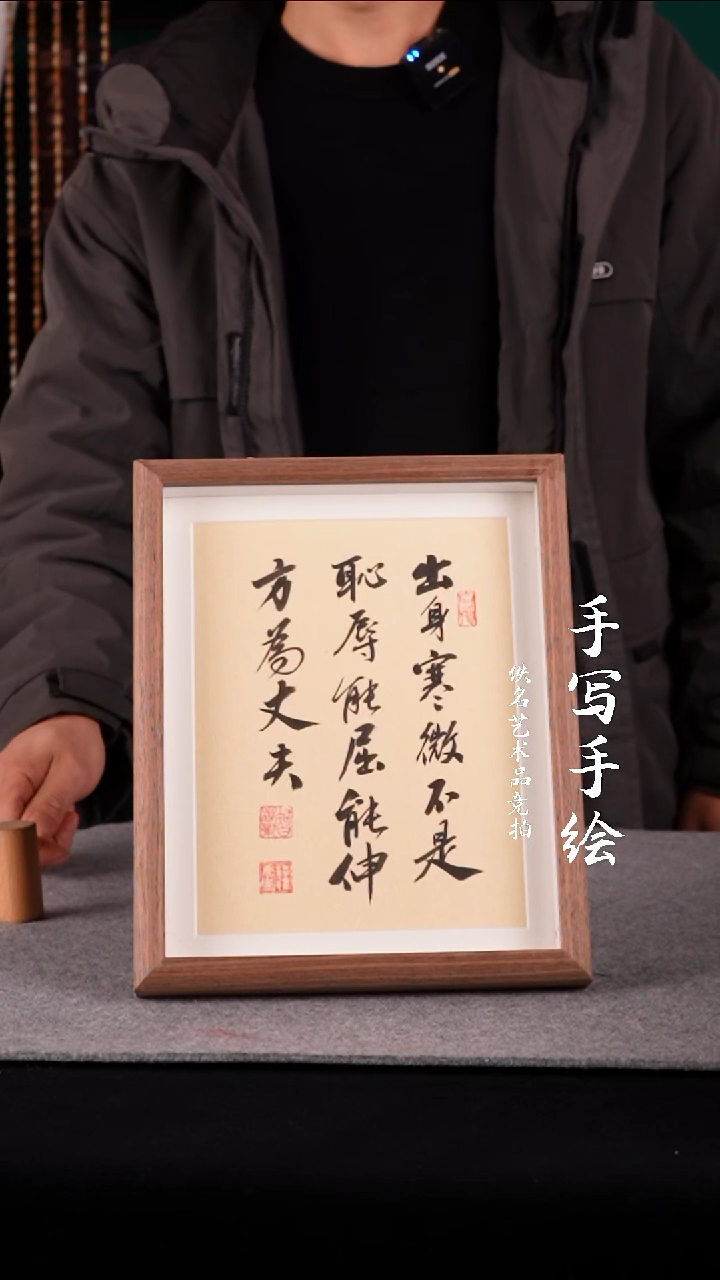 出身寒微不是
恥辱能屈能伸
方為丈夫
手写手绘
佚名艺术品竞拍